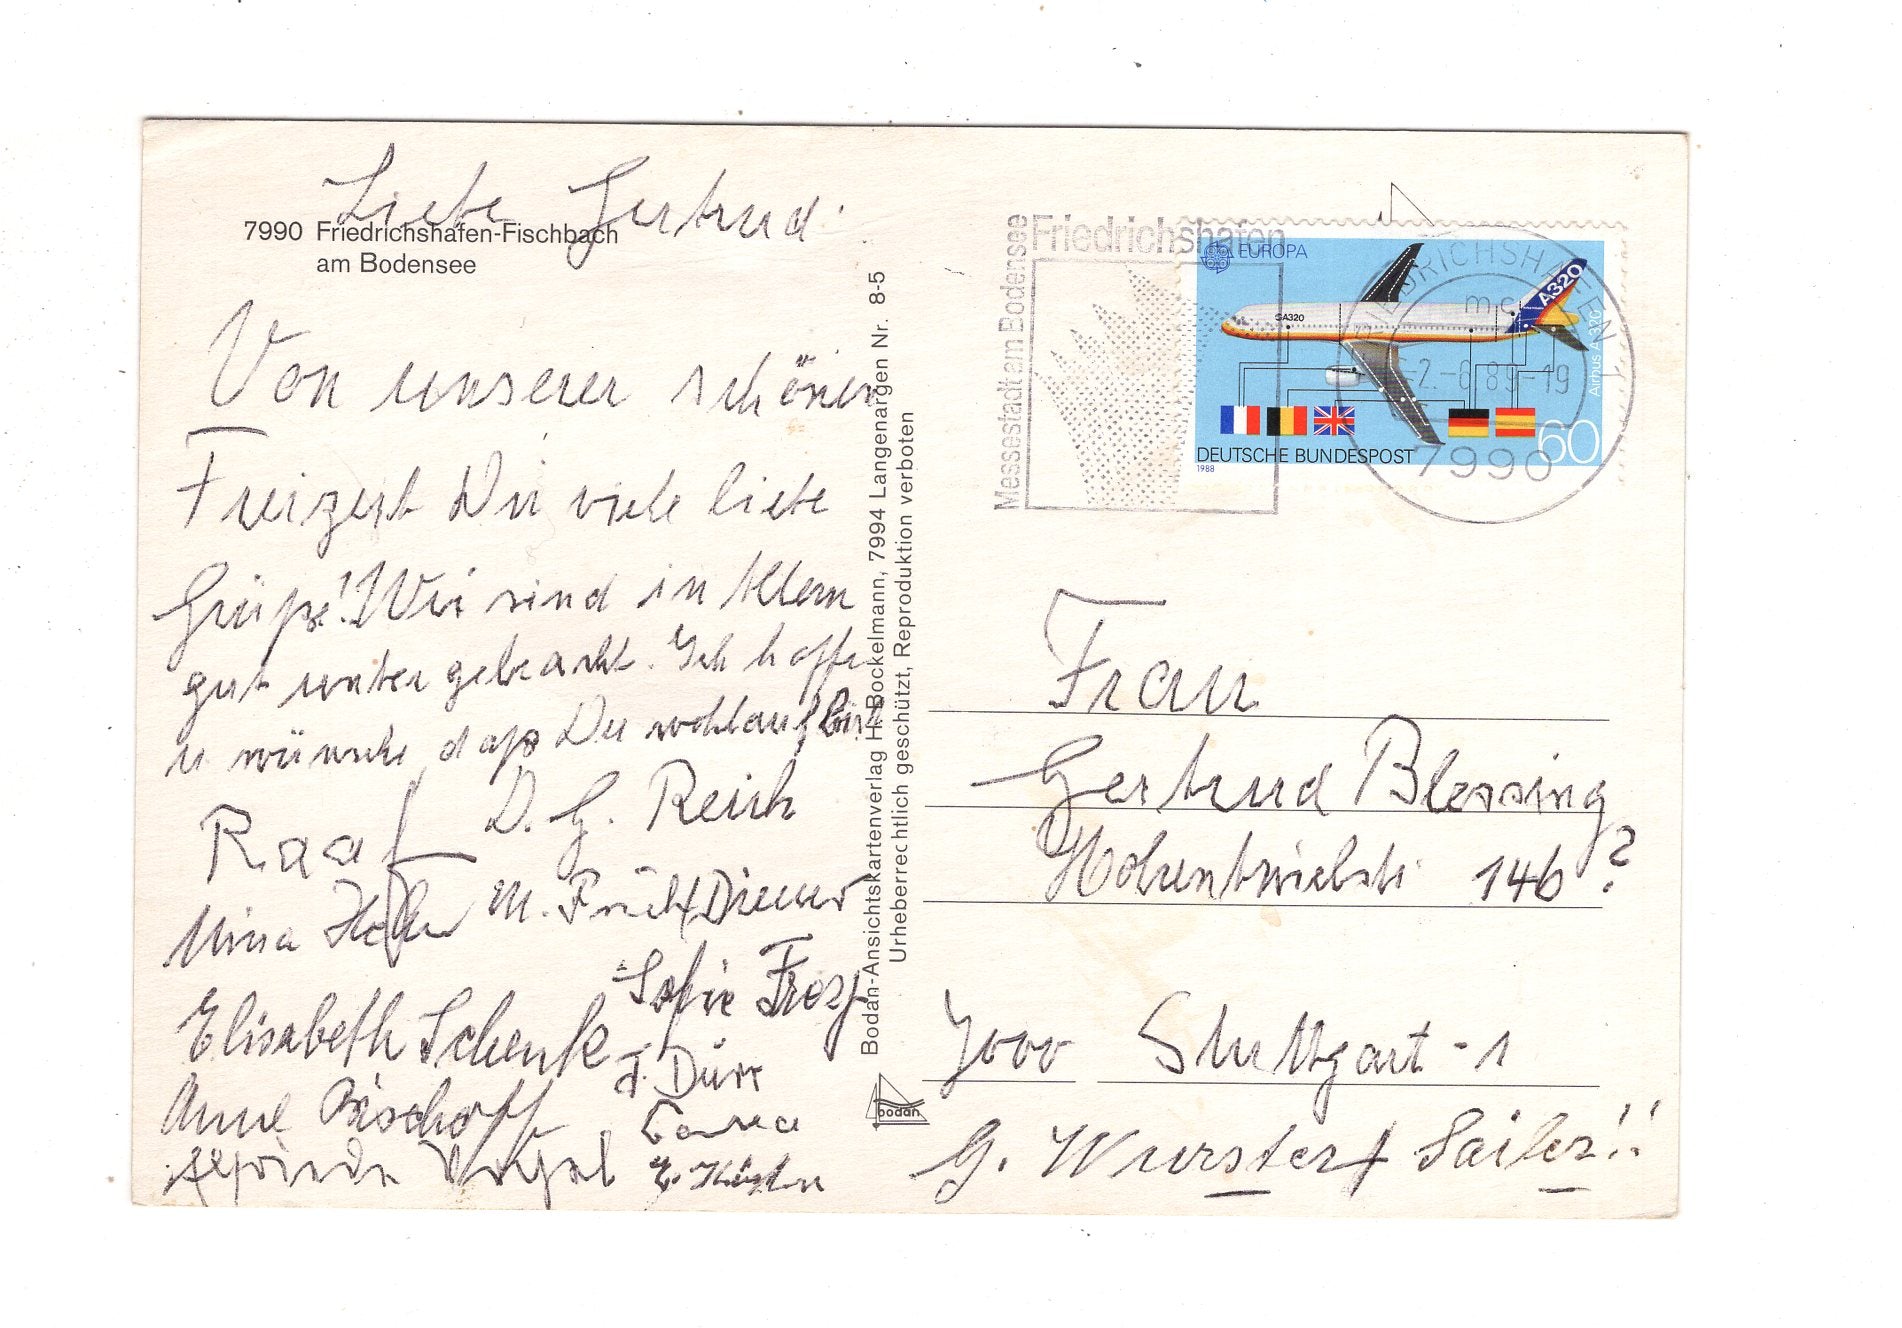 Liebe Gertrud!
7990 Friedrichshafen-Fischbach
am Bodensee
Von unserer schönen
Freizeit Dir viele liebe
Grüße! Wir sind in Allem
gut untergebracht. Ich hoffe
u wünsche daß Du wohlauf bist
D. G. Reich
Raaf
Mina M. Früh
Sofie
Elisabeth Schenk
J. Dürr
Anne Bischoff
Vogel
Bodan-Ansichtskartenverlag H. Bockelmann, 7994 Langenargen Nr. 8-5
Urheberrechtlich geschützt, Reproduktion verboten
bodan
Messestadt am Bodensee
Friedrichshafen
FRIEDRICHSHAFEN 1
mc
-2.-6.89-19
7990
EUROPA
A320
A320
Airbus A 320
60
DEUTSCHE BUNDESPOST
1988
Frau
Gertrud Blessing
Hohentwielstr 146 ?
7000 Stuttgart-1
G. Wurster + Sailer!!